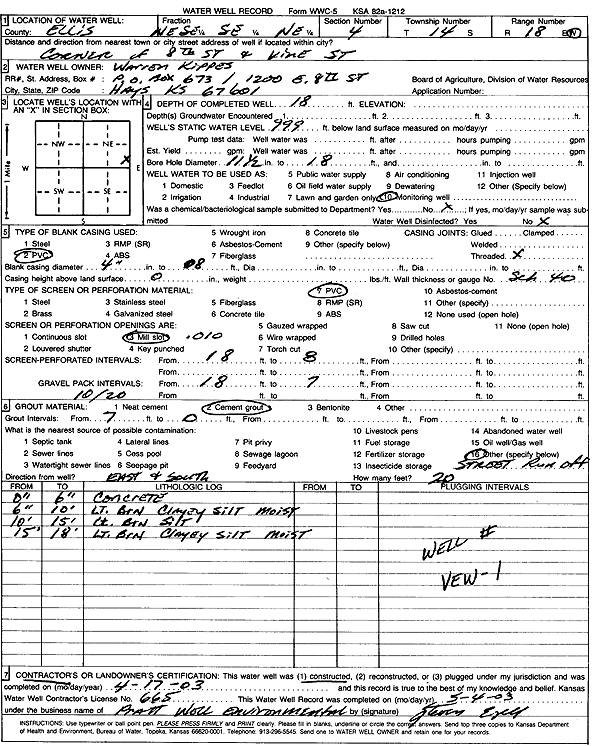 WATER WELL RECORD Form WWC-5 KSA 82a-1212
1 LOCATION OF WATER WELL: Fraction Section Number Township Number Range Number
County: Ellis NE SE ¼ SE ¼ NE ¼ 4 T 14 S R 18 E/W
Distance and direction from nearest town or city street address of well if located within city?
Corner of 8th St & Vine St
2 WATER WELL OWNER: Warren Kippes
RR#, St. Address, Box # : P.O. Box 673 / 1200 E. 8th St Board of Agriculture, Division of Water Resources
City, State, ZIP Code : Hays KS 67601 Application Number:
3 LOCATE WELL'S LOCATION WITH AN "X" IN SECTION BOX:
N
NW NE
W X E
SW SE
S
1 Mile
4 DEPTH OF COMPLETED WELL 18 ft. ELEVATION:
Depth(s) Groundwater Encountered 1. ft. 2. ft. 3. ft.
WELL'S STATIC WATER LEVEL 999 ft. below land surface measured on mo/day/yr
Pump test data: Well water was ft. after hours pumping gpm
Est. Yield gpm: Well water was ft. after hours pumping gpm
Bore Hole Diameter 11½ in. to 18 ft., and in. to ft.
WELL WATER TO BE USED AS: 5 Public water supply 8 Air conditioning 11 Injection well
1 Domestic 3 Feedlot 6 Oil field water supply 9 Dewatering 12 Other (Specify below)
2 Irrigation 4 Industrial 7 Lawn and garden only 10 Monitoring well
Was a chemical/bacteriological sample submitted to Department? Yes No X ; If yes, mo/day/yr sample was submitted
Water Well Disinfected? Yes No X
5 TYPE OF BLANK CASING USED: 5 Wrought iron 8 Concrete tile CASING JOINTS: Glued Clamped
1 Steel 3 RMP (SR) 6 Asbestos-Cement 9 Other (specify below) Welded
2 PVC 4 ABS 7 Fiberglass Threaded X
Blank casing diameter 4" in. to 08 ft., Dia in. to ft., Dia in. to ft.
Casing height above land surface 0 in., weight lbs./ft. Wall thickness or gauge No. Sch. 40
TYPE OF SCREEN OR PERFORATION MATERIAL: 7 PVC 10 Asbestos-cement
1 Steel 3 Stainless steel 5 Fiberglass 8 RMP (SR) 11 Other (specify)
2 Brass 4 Galvanized steel 6 Concrete tile 9 ABS 12 None used (open hole)
SCREEN OR PERFORATION OPENINGS ARE: 5 Gauzed wrapped 8 Saw cut 11 None (open hole)
1 Continuous slot 3 Mill slot .010 6 Wire wrapped 9 Drilled holes
2 Louvered shutter 4 Key punched 7 Torch cut 10 Other (specify)
SCREEN-PERFORATED INTERVALS: From 18 ft. to 8 ft., From ft. to ft.
From ft. to ft., From ft. to ft.
GRAVEL PACK INTERVALS: From 18 ft. to 7 ft., From ft. to ft.
10/20 From ft. to ft., From ft. to ft.
6 GROUT MATERIAL: 1 Neat cement 2 Cement grout 3 Bentonite 4 Other
Grout Intervals: From 7 ft. to 0 ft., From ft. to ft., From ft. to ft.
What is the nearest source of possible contamination: 10 Livestock pens 14 Abandoned water well
1 Septic tank 4 Lateral lines 7 Pit privy 11 Fuel storage 15 Oil well/Gas well
2 Sewer lines 5 Cess pool 8 Sewage lagoon 12 Fertilizer storage 16 Other (specify below)
3 Watertight sewer lines 6 Seepage pit 9 Feedyard 13 Insecticide storage Street Run off
Direction from well? East & South How many feet? 20
FROM TO LITHOLOGIC LOG FROM TO PLUGGING INTERVALS
0" 6" Concrete
6" 10' Lt. Brn Clayey Silt Moist
10' 15' Lt. Brn Silt
15' 18' Lt. Brn Clayey Silt Moist
Well #
VEW-1
7 CONTRACTOR'S OR LANDOWNER'S CERTIFICATION: This water well was (1) constructed, (2) reconstructed, or (3) plugged under my jurisdiction and was
completed on (mo/day/year) 4-17-03 and this record is true to the best of my knowledge and belief. Kansas
Water Well Contractor's License No. 665 This Water Well Record was completed on (mo/day/yr) 5-4-03
under the business name of Pratt Well Environmental by (signature)
INSTRUCTIONS: Use typewriter or ball point pen. PLEASE PRESS FIRMLY and PRINT clearly. Please fill in blanks, underline or circle the correct answers. Send top three copies to Kansas Department
of Health and Environment, Bureau of Water, Topeka, Kansas 66620-0001. Telephone: 913-296-5545. Send one to WATER WELL OWNER and retain one for your records.